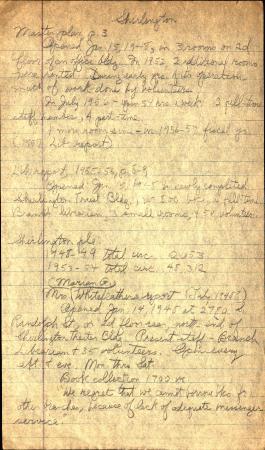 Shirlington
Master plan, p. 3
Opened Jan. 15, 1948, in 3 rooms on 2d
floor of an office bldg. In 1952, 2 additional rooms
were rented. During early yrs. of its operation
much of work done by volunteers.
In July 1956 open 54 hrs. week. 2 full-time
staff members, 4 part-time.
1 more room since in 1956-57 fiscal yr.
Lib. report)
Lib. report, 1955-56, p. 8-9
Opened Jan. 15, in newly completed
Shirlington Trust Bldg., full-time
Branch librarian, 3 small rooms, volunteers.
Shirlington
1948-49 total circ.
1953-54 total circ. 48,312
(Marian G)
Mrs. Whitecather's report (July 1948?)
Opened Jan. 14, 1948 at 2772 S.
Randolph St., on 2d floor rear, north end of
Shirlington Theater Bldg. Present staff - Branch
Librarian + 35 volunteers. Open every
aft. & eve. Mon. thru Sat.
Book collection 1792
"We regret that we cannot borrow bks. fr.
other branches, because of lack of adequate messenger
service."